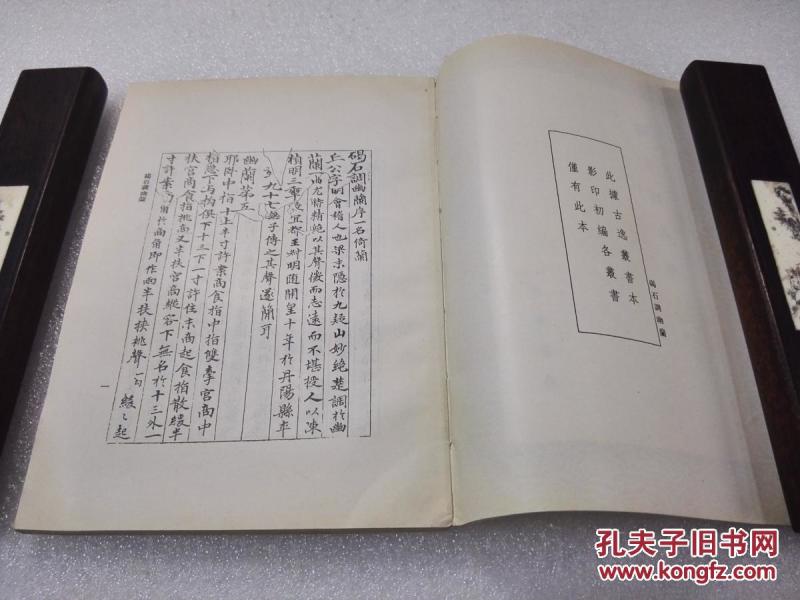 此據古逸叢書本
影印初編各叢書
僅有此本
碣石調幽蘭
碣石調幽蘭序一名倚蘭
丘公字明會稽人也梁末隱於九疑山妙絕楚調於幽
蘭一曲尤特精絕以其聲微而志遠而不堪授人以陳
禎明三年授宜都王叔明隨開皇十年於丹陽縣卒
九十七無子傳之其聲遂簡耳
幽蘭第五
耶臥中指十上半寸許案商食指中指雙牽宮商中
指急下与拘俱下十三下一寸許住末商起食指散緩半
扶宮商食指挑商又半扶宮商縱容下無名於十三外一
寸許案商角於商角即作兩半扶挾挑聲一句緩〻起
碣石調幽蘭
一
孔夫子旧书网
www.kongfz.com